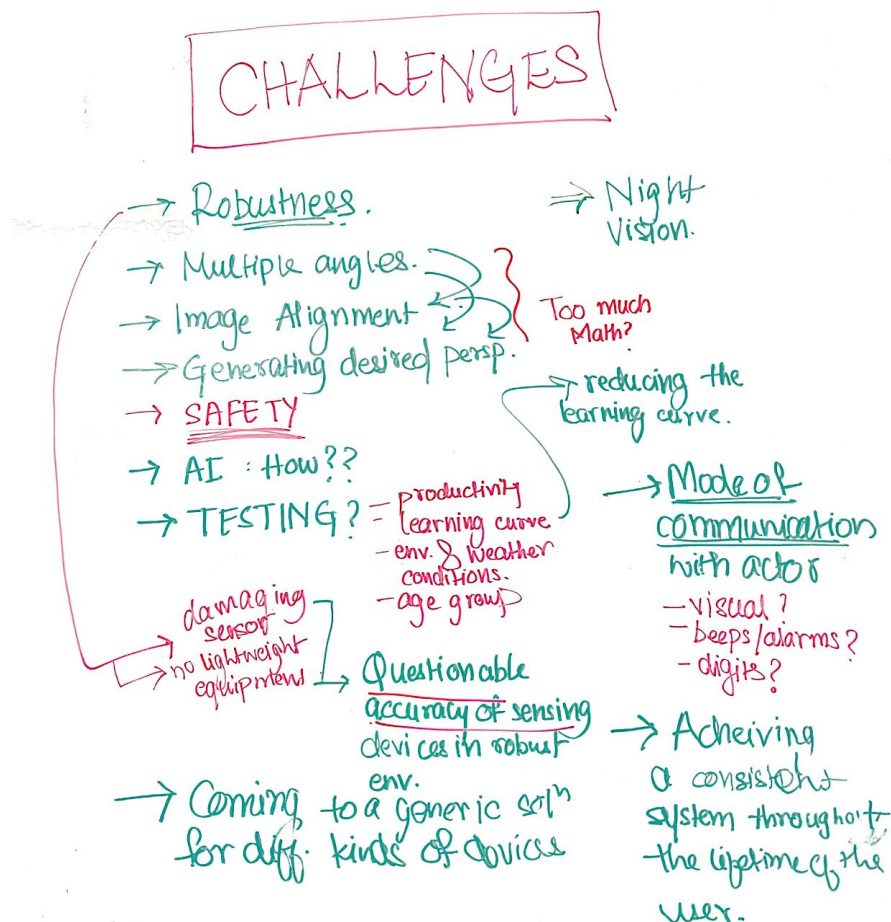 CHALLENGES
→ Robustness.
→ Multiple angles.
→ Image Alignment
→ Generating desired persp.
Too much
Math?
→ SAFETY
→ AI : How??
→ TESTING?
- productivity
- learning curve
- env. & weather
conditions.
- age group
damaging
sensor
no lightweight
equipment
→ Questionable
accuracy of sensing
devices in robust
env.
→ Coming to a generic solⁿ
for diff. kinds of devices
⇒ Night
Vision.
→ reducing the
learning curve.
→ Mode of
communication
with actor
- visual?
- beeps/alarms?
- digits?
→ Acheiving
a consistent
system throughout
the lifetime of the
user.